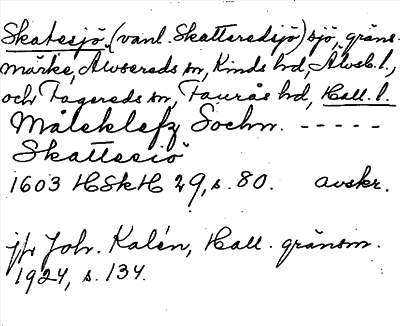 Skatesjö (vanl. Skatteredsjö) sjö, gräns-
märke, Älvsereds sn, Kinds hd, Älvsb. l.,
och Fagereds sn, Faurås hd, Hall. l.
Måleklefz Sochn. -----
Skattesiö
1603 HSkH 29, s. 80. avskr.
jfr Joh. Kalén, Hall. gränsm.
1924, s. 134.